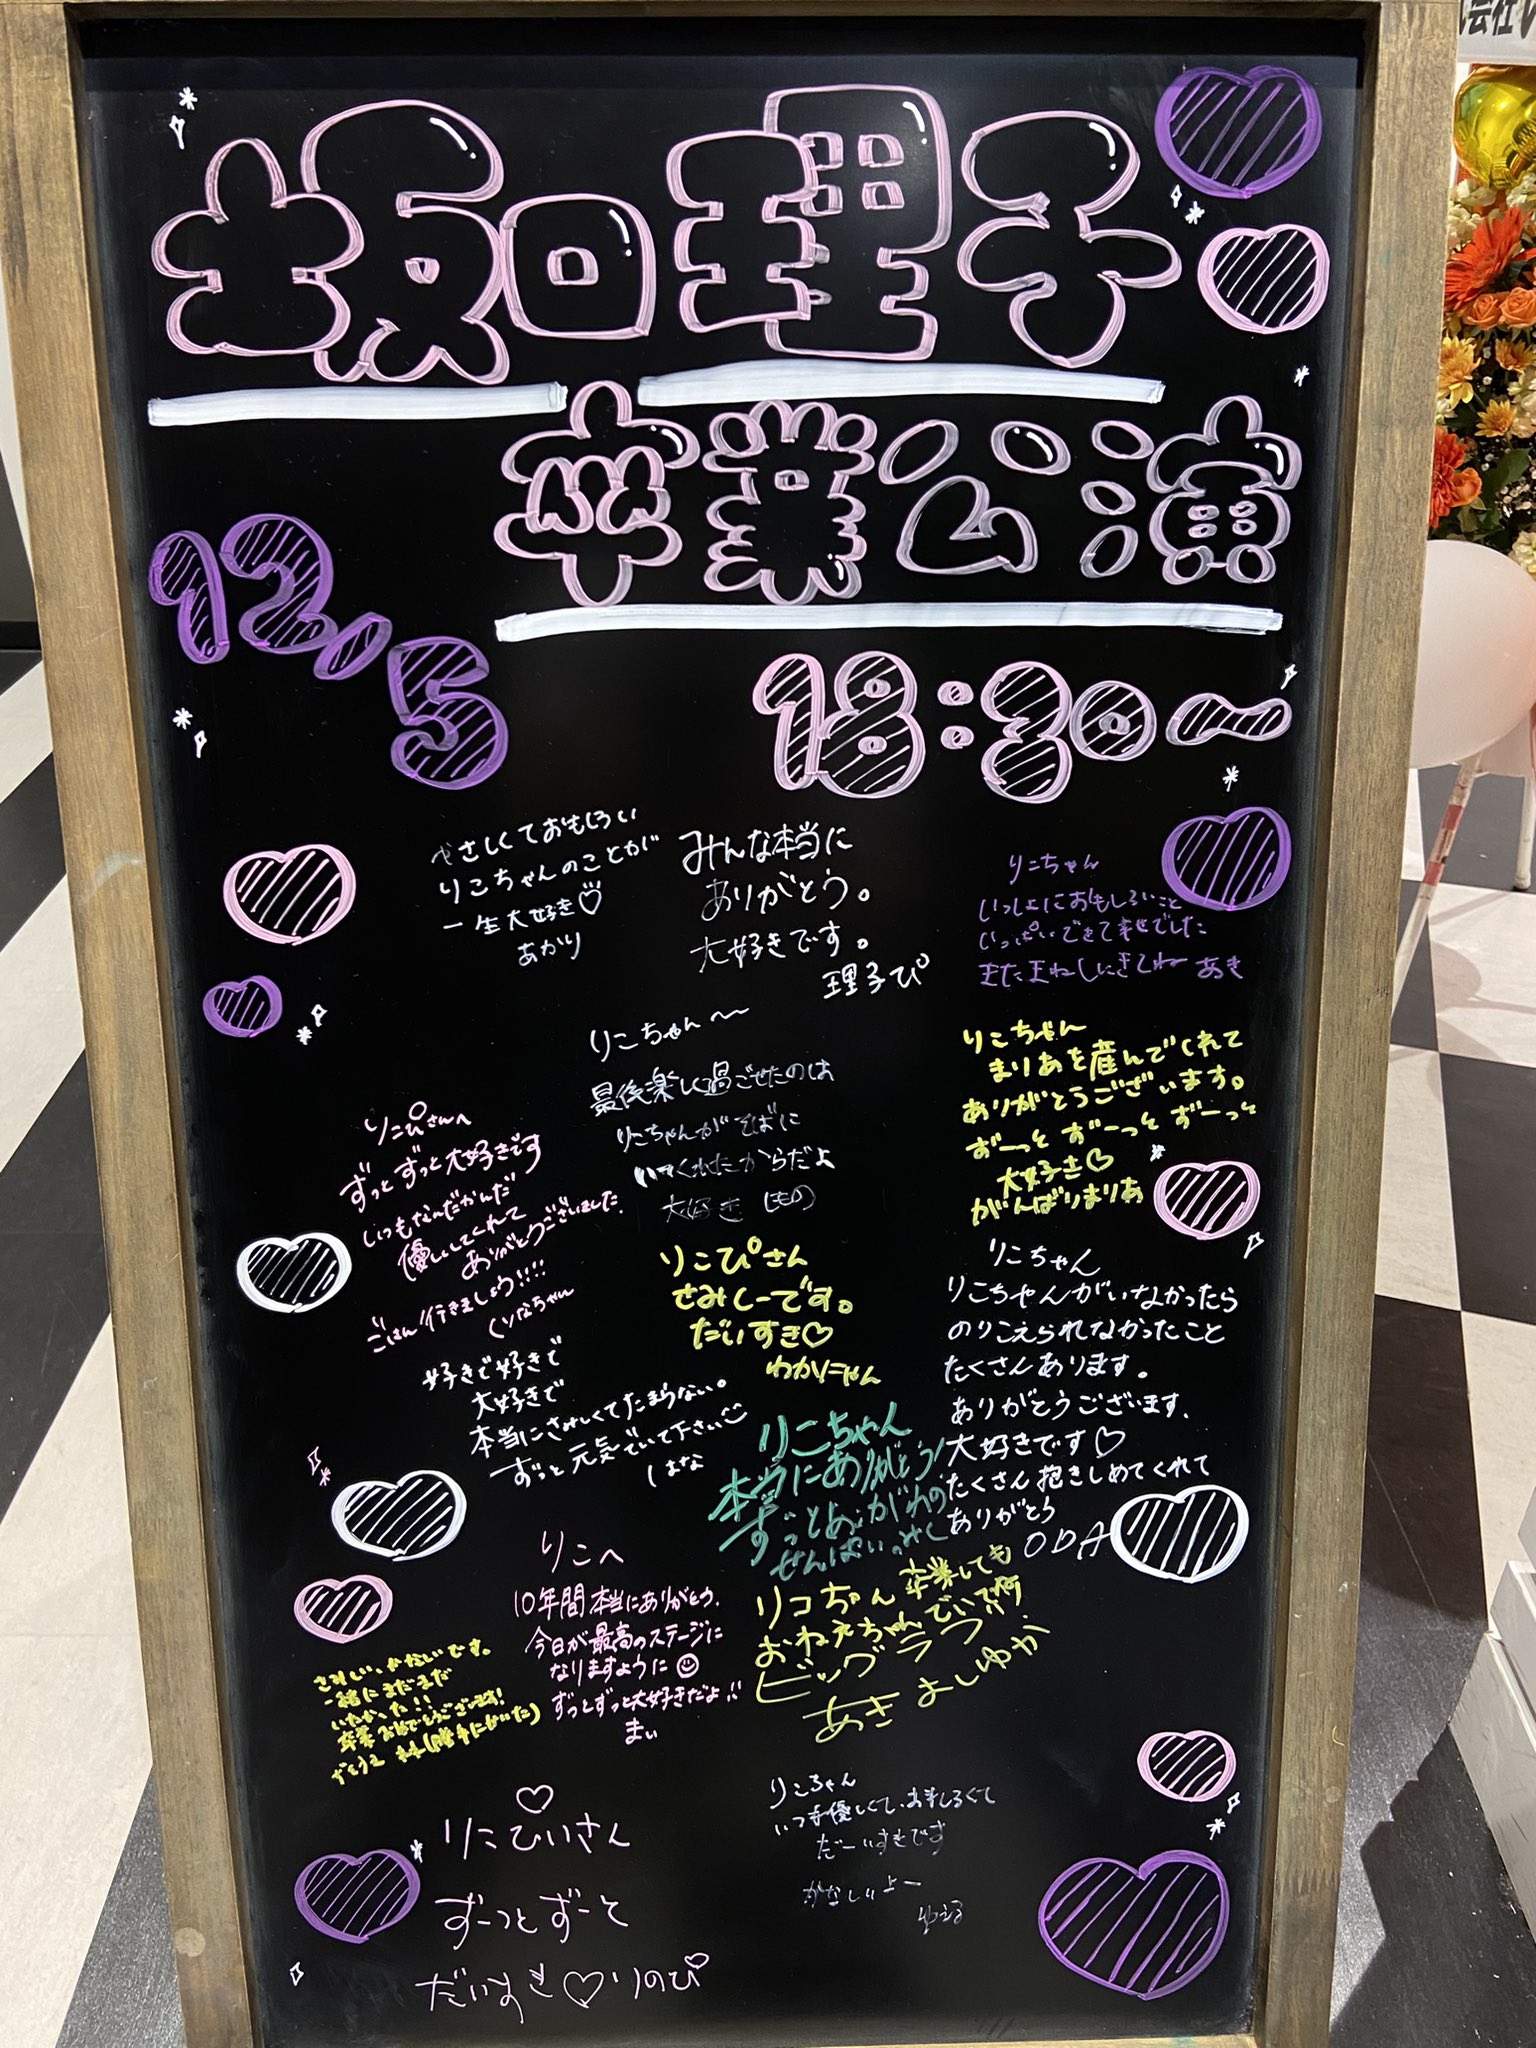 坂口理子
卒業公演
12.5
18:30〜
やさしくておもしろい
りこちゃんのことが
一生大好き♡
あかり
みんな本当に
ありがとう。
大好きです。
理子ぴ
りこちゃん
いっしょにおもしろいこと
いっぱいできて幸せでした
またまねしにきてね あき
りこちゃん〜
最後楽しく過ごせたのは
りこちゃんがそばに
いてくれたからだよ
大好き しの
りこちゃん
まりあを産んでくれて
ありがとうございます。
ずーっと ずーっと ずーっと
大好き♡
がんばりまりあ
りこぴさんへ
ずっとずっと大好きです
いつもなんだかんだ
優しくしてくれて
ありがとうございました。
ごはん行きましょう!!!!
りなちゃん
りこぴさん
さみしーです。
だいすき♡
わかにゃん
りこちゃん
りこちゃんがいなかったら
のりこえられなかったこと
たくさんあります。
ありがとうございます。
大好きです♡
たくさん抱きしめてくれて
ありがとう
ODA
好きで好きで
大好きで
本当にさみしくてたまらない。
ずっと元気でいて下さい
しはな
りこちゃん
本当にありがとう!
ずっとあこがれの
せんぱい。みく
りこへ
10年間本当にありがとう。
今日が最高のステージに
なりますように
ずっとずっと大好きだよ!!
まい
リコちゃん 卒業しても
おねえちゃんでいて
ビッグラブ
あきよしゆか
さみしい、かなしいです。
一緒にまだまだ
いたかった!!
卒業おめでとうございます!
(勝手にかいた)
りこぴぃさん
ずーっとずーっと
だいすき♡りのぴ
りこちゃん
いつも優しくて、おもしろくて
だーいすきです
かなしいよー
ゆうる
会社